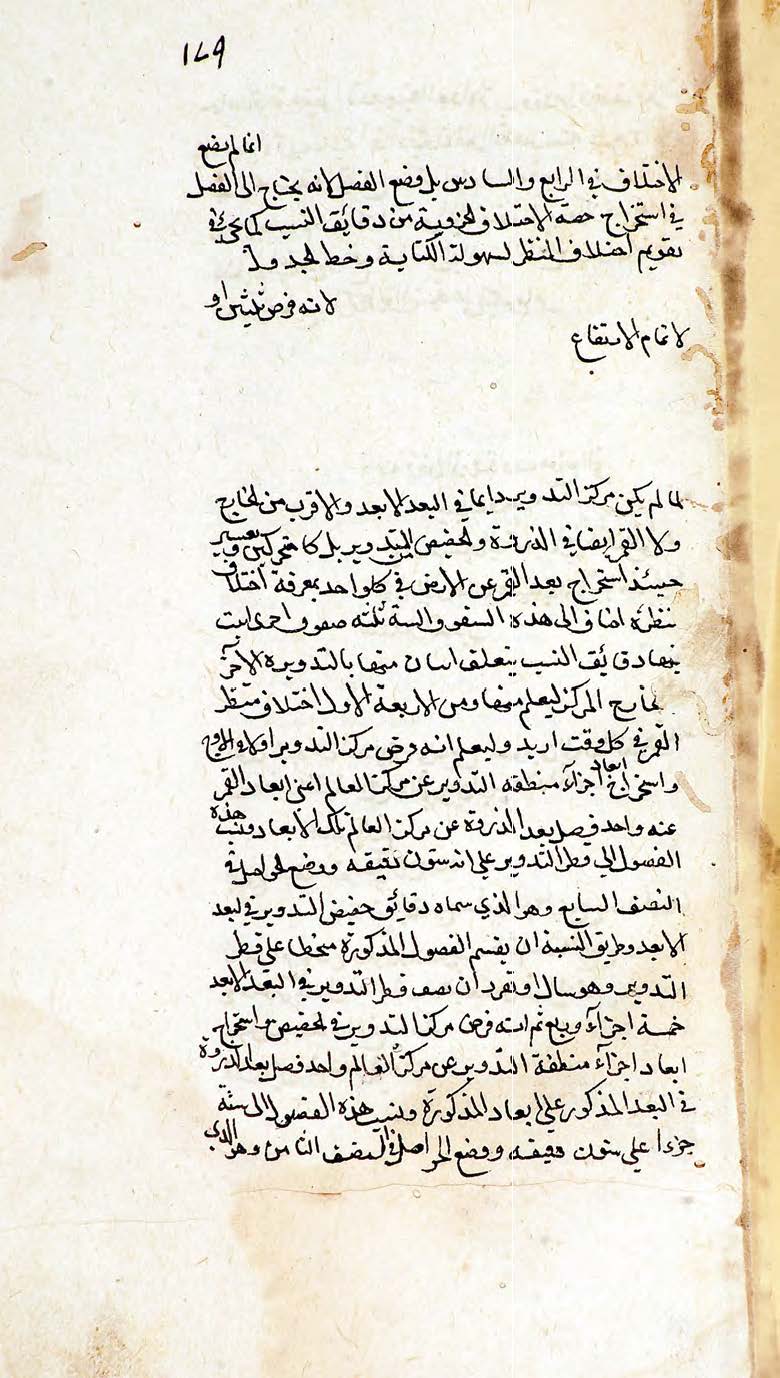 ١٤٩
انما لم يضع
الاختلاف في الرابع والسادس بل وضع الفصل لانه يحتاج الى الفصل
في استخراج حصة الاختلاف الجزوية من دقايق النسب كما يجئ في
تقويم اختلاف المنظر لسهولة الكتابة وخط الجدول
لانه فرض ثليثين او
لاتمام الارتفاع
لما لم يكن مركز التدوير دايما في البعد الابعد والاقرب من الخارج
ولا القمر ايضا في الذروة والحضيض التدوير بل كانا متحركين
حينئذ استخراج بعد القمر عن الارض في كل واحد بمعرفة اختلاف
منظره اضاف الى هذه الصفوف الستة ثلثة صفوف اخرى اثبت
فيها دقايق النسب يتعلق اثنان منها بالتدوير والاخر
بخارج المركز ليعلم منها ومن الاربعة الاول اختلاف منظر
القمر في كل وقت اريد وليعلم انه فرض مركز التدوير اولا في الاوج
واستخراج ابعاد اجزآء منطقة التدوير عن مركز العالم اعنى ابعاد القمر
عنه واحد فصل بعد الذروة عن مركز العالم تلك الابعاد ونسب هذه
الفصول الى قطر التدوير على انه ستون دقيقه ووضع الحواصل في
النصف السابع وهو الذي سماه دقائق حضيض التدوير في البعد
الابعد وطريق النسبة ان يقسم الفصول المذكورة منحطا على قطر
التدوير وهو سال او تقرر ان نصف قطر التدوير في البعد الابعد
خمسة اجزآء وربع ثم انه فرض مركز التدوير في الحضيض واستخراج
ابعاد اجزآء منطقة التدوير عن مركز العالم واحد فصل بعاد الذروة
في البعد المذكور على ابعاد المذكورة ونسب هذه الفصول الى ستة
جزءا على ستون دقيقه ووضع الحواصل في النصف الثامن وهو الذي